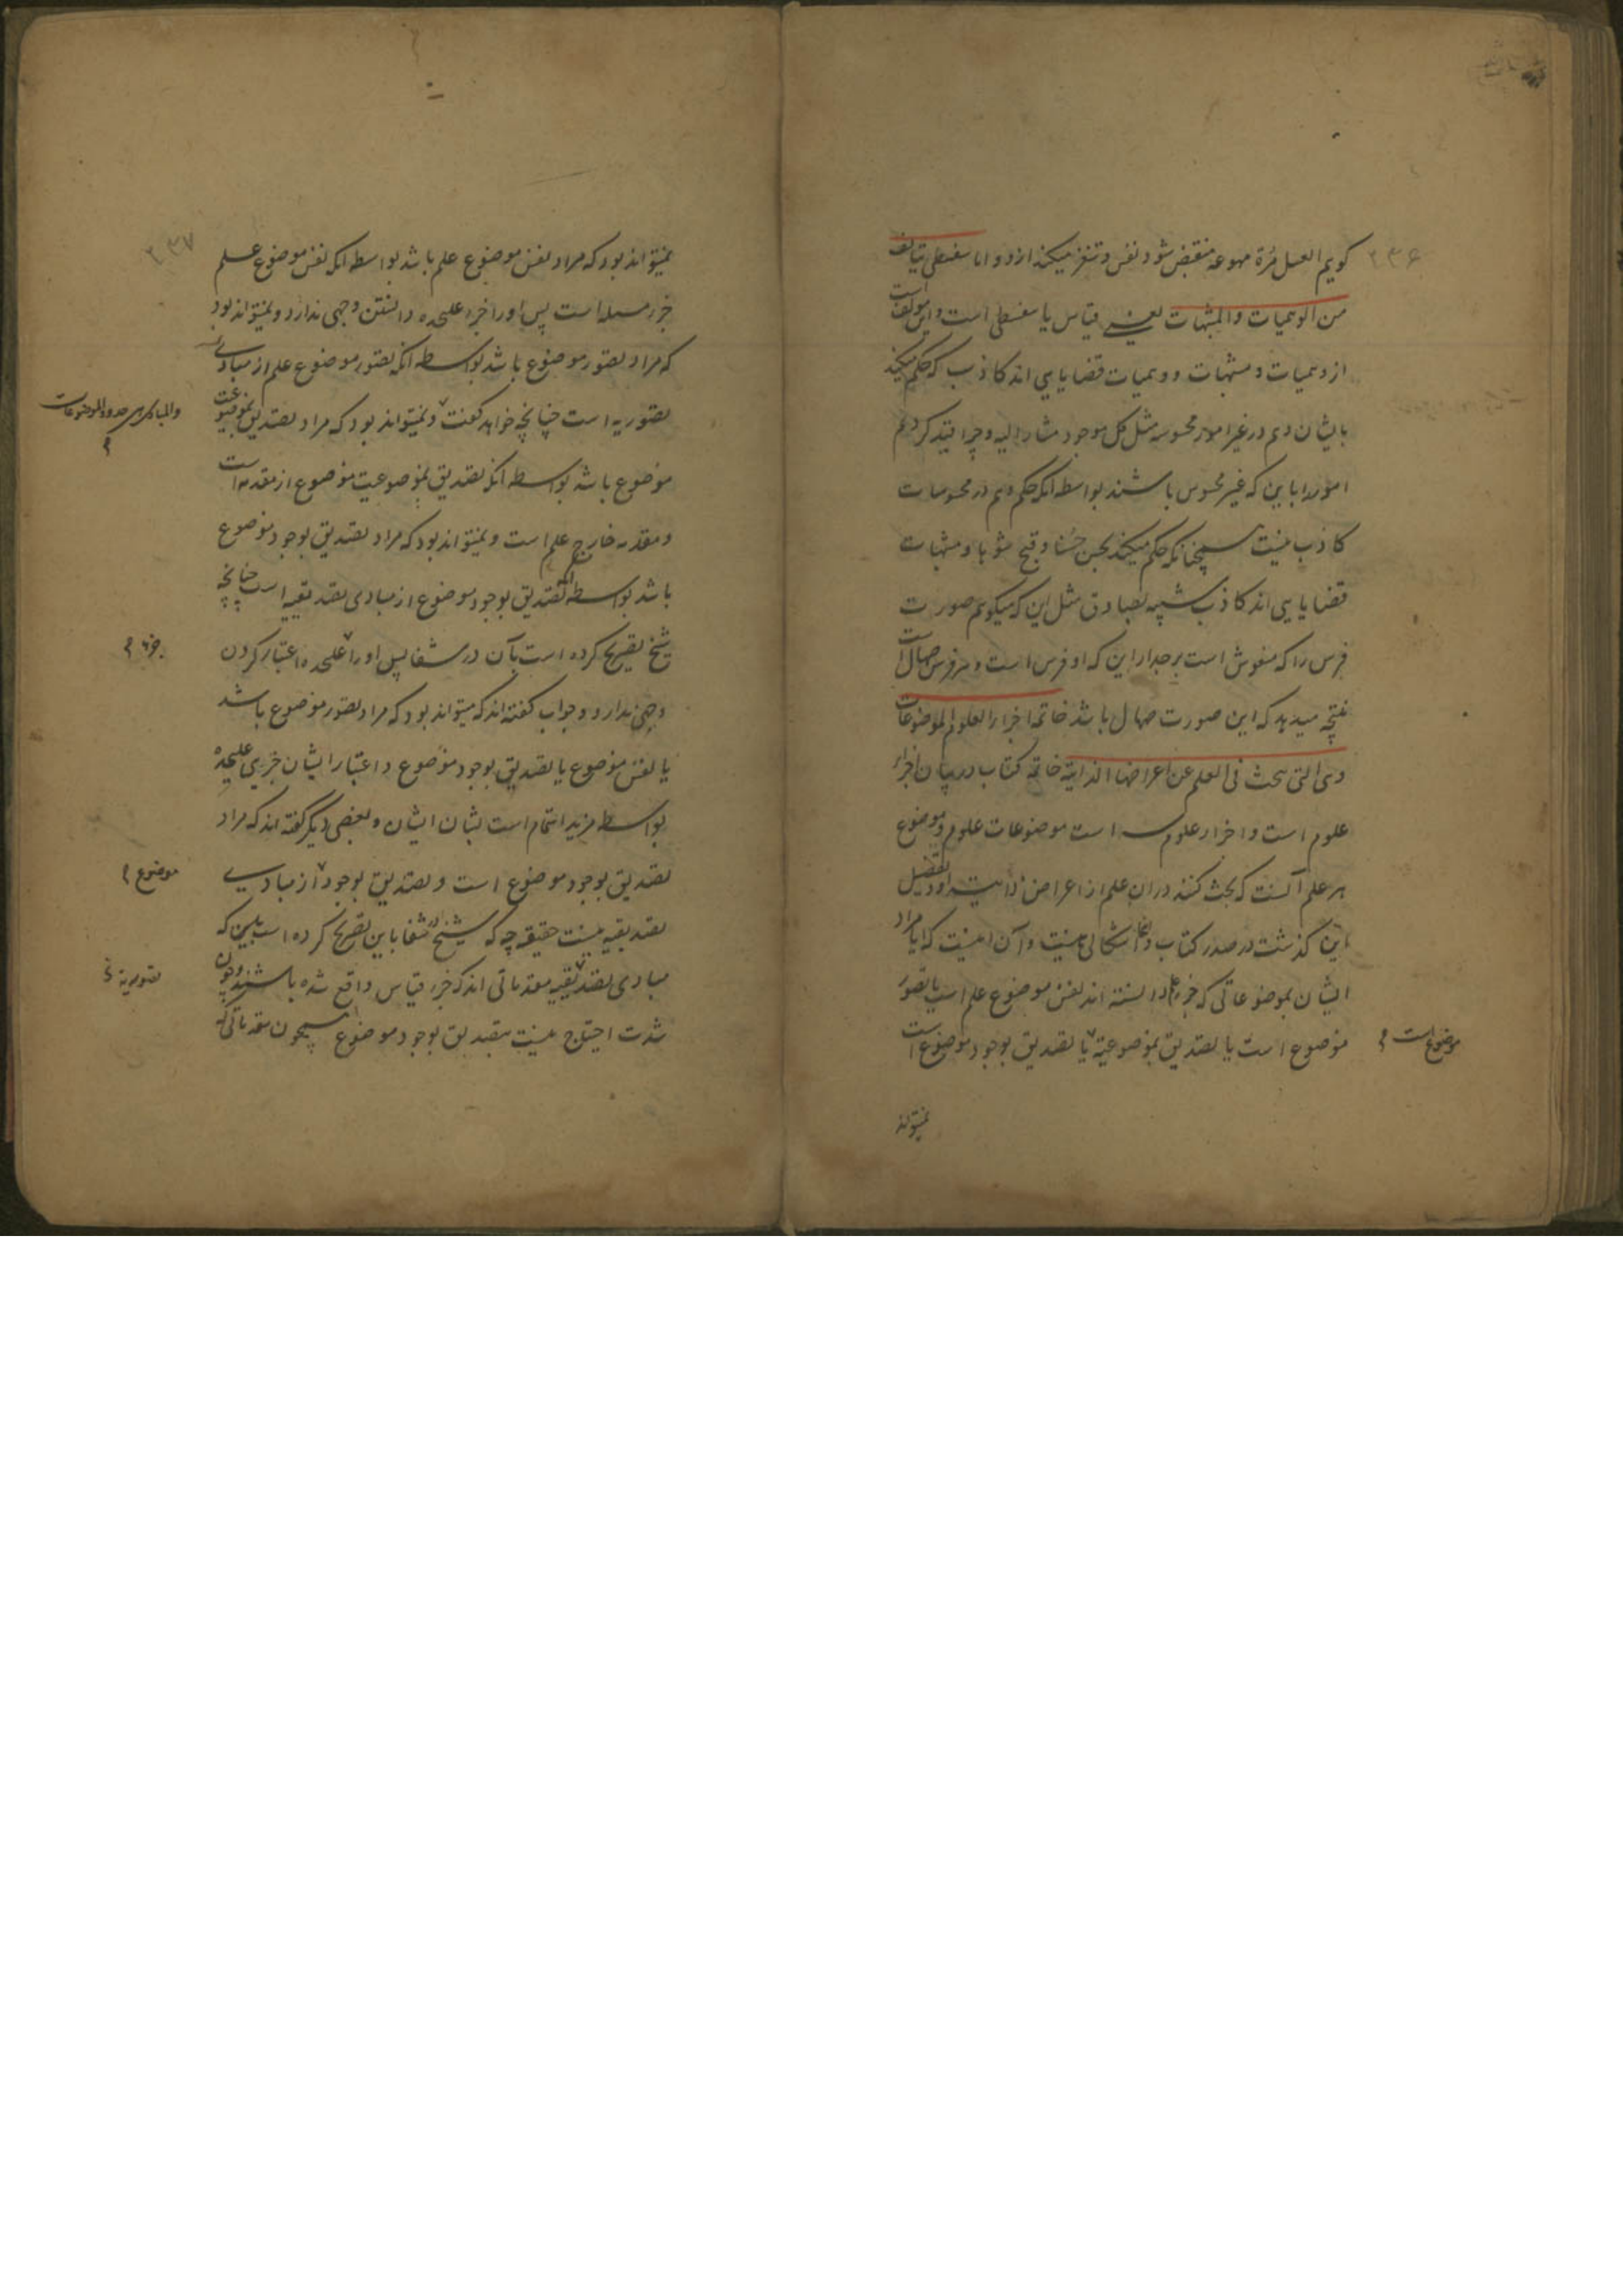 ۲۳۶
گویم العسل مرة مهوعة منقبض شود نفس و تنفر میکند ازو و اما سفسطی یتألف
من الوهمیات والمشبهات یعنی قیاس یا سفسطی است و این مؤلف است
از وهمیات و مشبهات و وهمیات قضایایی اند کاذب که حکم میکند
بایشان وهم در غیر امور محسوسه مثل کل موجود مشار الیه و چرا قید کردیم
امور را باین که غیر محسوس باشند بواسطه آنکه حکم وهم در محسوسات
کاذب نیست همچنانکه حکم میکند بحسن حسنا و قبح شوها و مشبهات
قضایایی اند کاذب شبیه بصادق مثل این که میگویم صورت
فرس را که منقوش است بر جدار این که او فرس است و هر فرس صهال است
نتیجه میدهد که این صورت صهال باشد خاتمة اجزاء العلوم الموضوعات
وهی التی یبحث فی العلم عن اعراضها الذاتیة خاتمه کتاب در بیان اجزاء
علوم است و اجزاء علوم سه است موضوعات علوم و موضوع
هر علم آنست که بحث کنند دران علم از اعراض ذاتیه او و تفصیل
این گذشت در صدر کتاب و اینجا اشکالی هست و آن اینست که آیا مراد
ایشان بموضوعاتی که جزء علم دانسته اند نفس موضوع علم است یا تصور
موضوع است یا تصدیق بموضوعیة یا تصدیق بوجود موضوع است
موضوع است
نمیتواند
۲۳۷
نمیتواند بود که مراد نفس موضوع علم باشد بواسطه آنکه نفس موضوع علم
جزء مسله است پس او را جزء علیحده دانستن وجهی ندارد و نمیتواند بود
که مراد تصور موضوع باشد بواسطه آنکه تصور موضوع علم از مبادی
تصوریه است چنانچه خواهد گفت و نمیتواند بود که مراد تصدیق بموضوعیت
والمبادی هی حدود الموضوعات
موضوع باشد بواسطه آنکه تصدیق بموضوعیت موضوع از مقدمه است
و مقدمه خارج علم است و نمیتواند بود که مراد تصدیق بوجود موضوع
باشد بواسطه آنکه تصدیق بوجود موضوع از مبادی تصدیقیه است چنانچه
شیخ تصریح کرده است بآن در شفا پس او را علیحده اعتبار کردن
جزء
وجهی ندارد و جواب گفته اند که میتواند بود که مراد تصور موضوع باشد
یا نفس موضوع یا تصدیق بوجود موضوع و اعتبار ایشان جزیی علیحده
بواسطه مزید اهتمام است بشان ایشان و بعضی دیگر گفته اند که مراد
تصدیق بوجود موضوع است و تصدیق بوجود از مبادی
موضوع
تصدیقیه نیست حقیقة چه که شیخ در شفا باین تصریح کرده است باین که
مبادی تصدیقیه مقدماتی اند که جزء قیاس واقع شده باشند و چون
تصوریه
شدت احتیاج هست بتصدیق بوجود موضوع همچون مقدماتی که